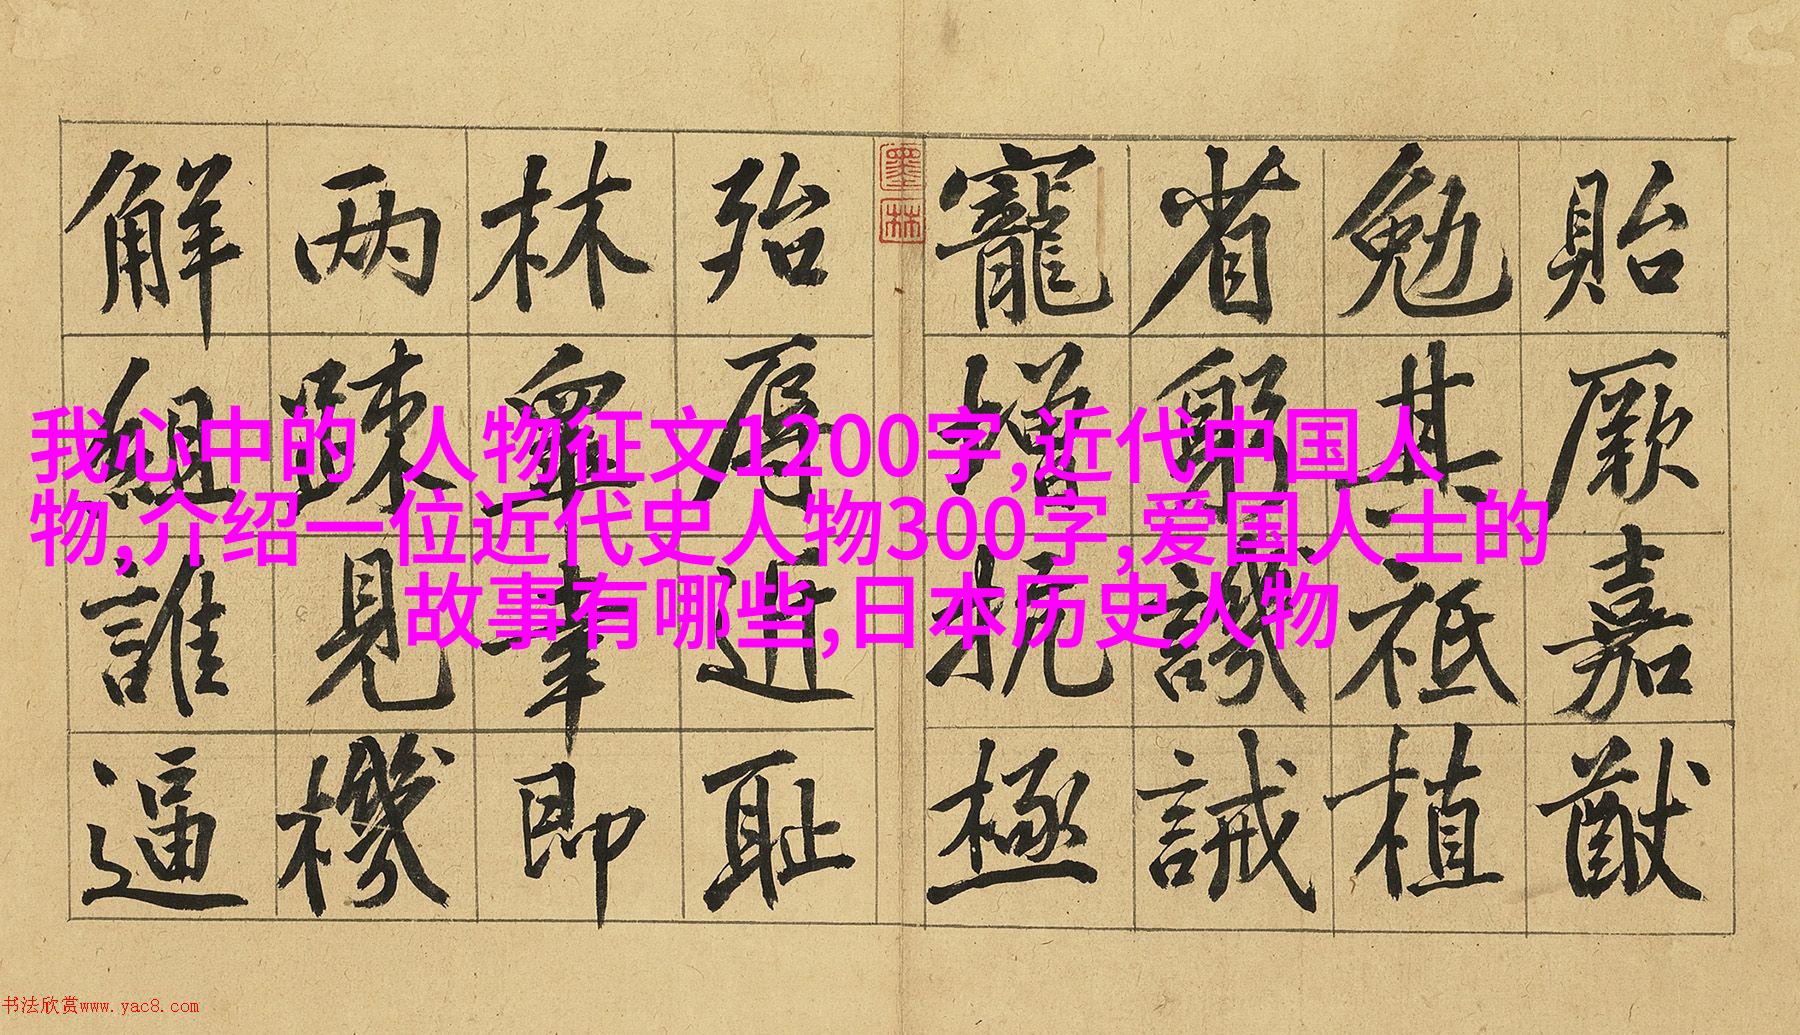 貽厥嘉猷
勉其祗植
省躬譏誡
寵增抗極
墨林
殆辱近耻
林皐幸即
两踈見機
解組誰逼
我心中的 人物征文1200字,近代中国人
物,介绍一位近代史人物300字,爱国人士的
故事有哪些,日本历史人物
书法欣赏www.yac8.com